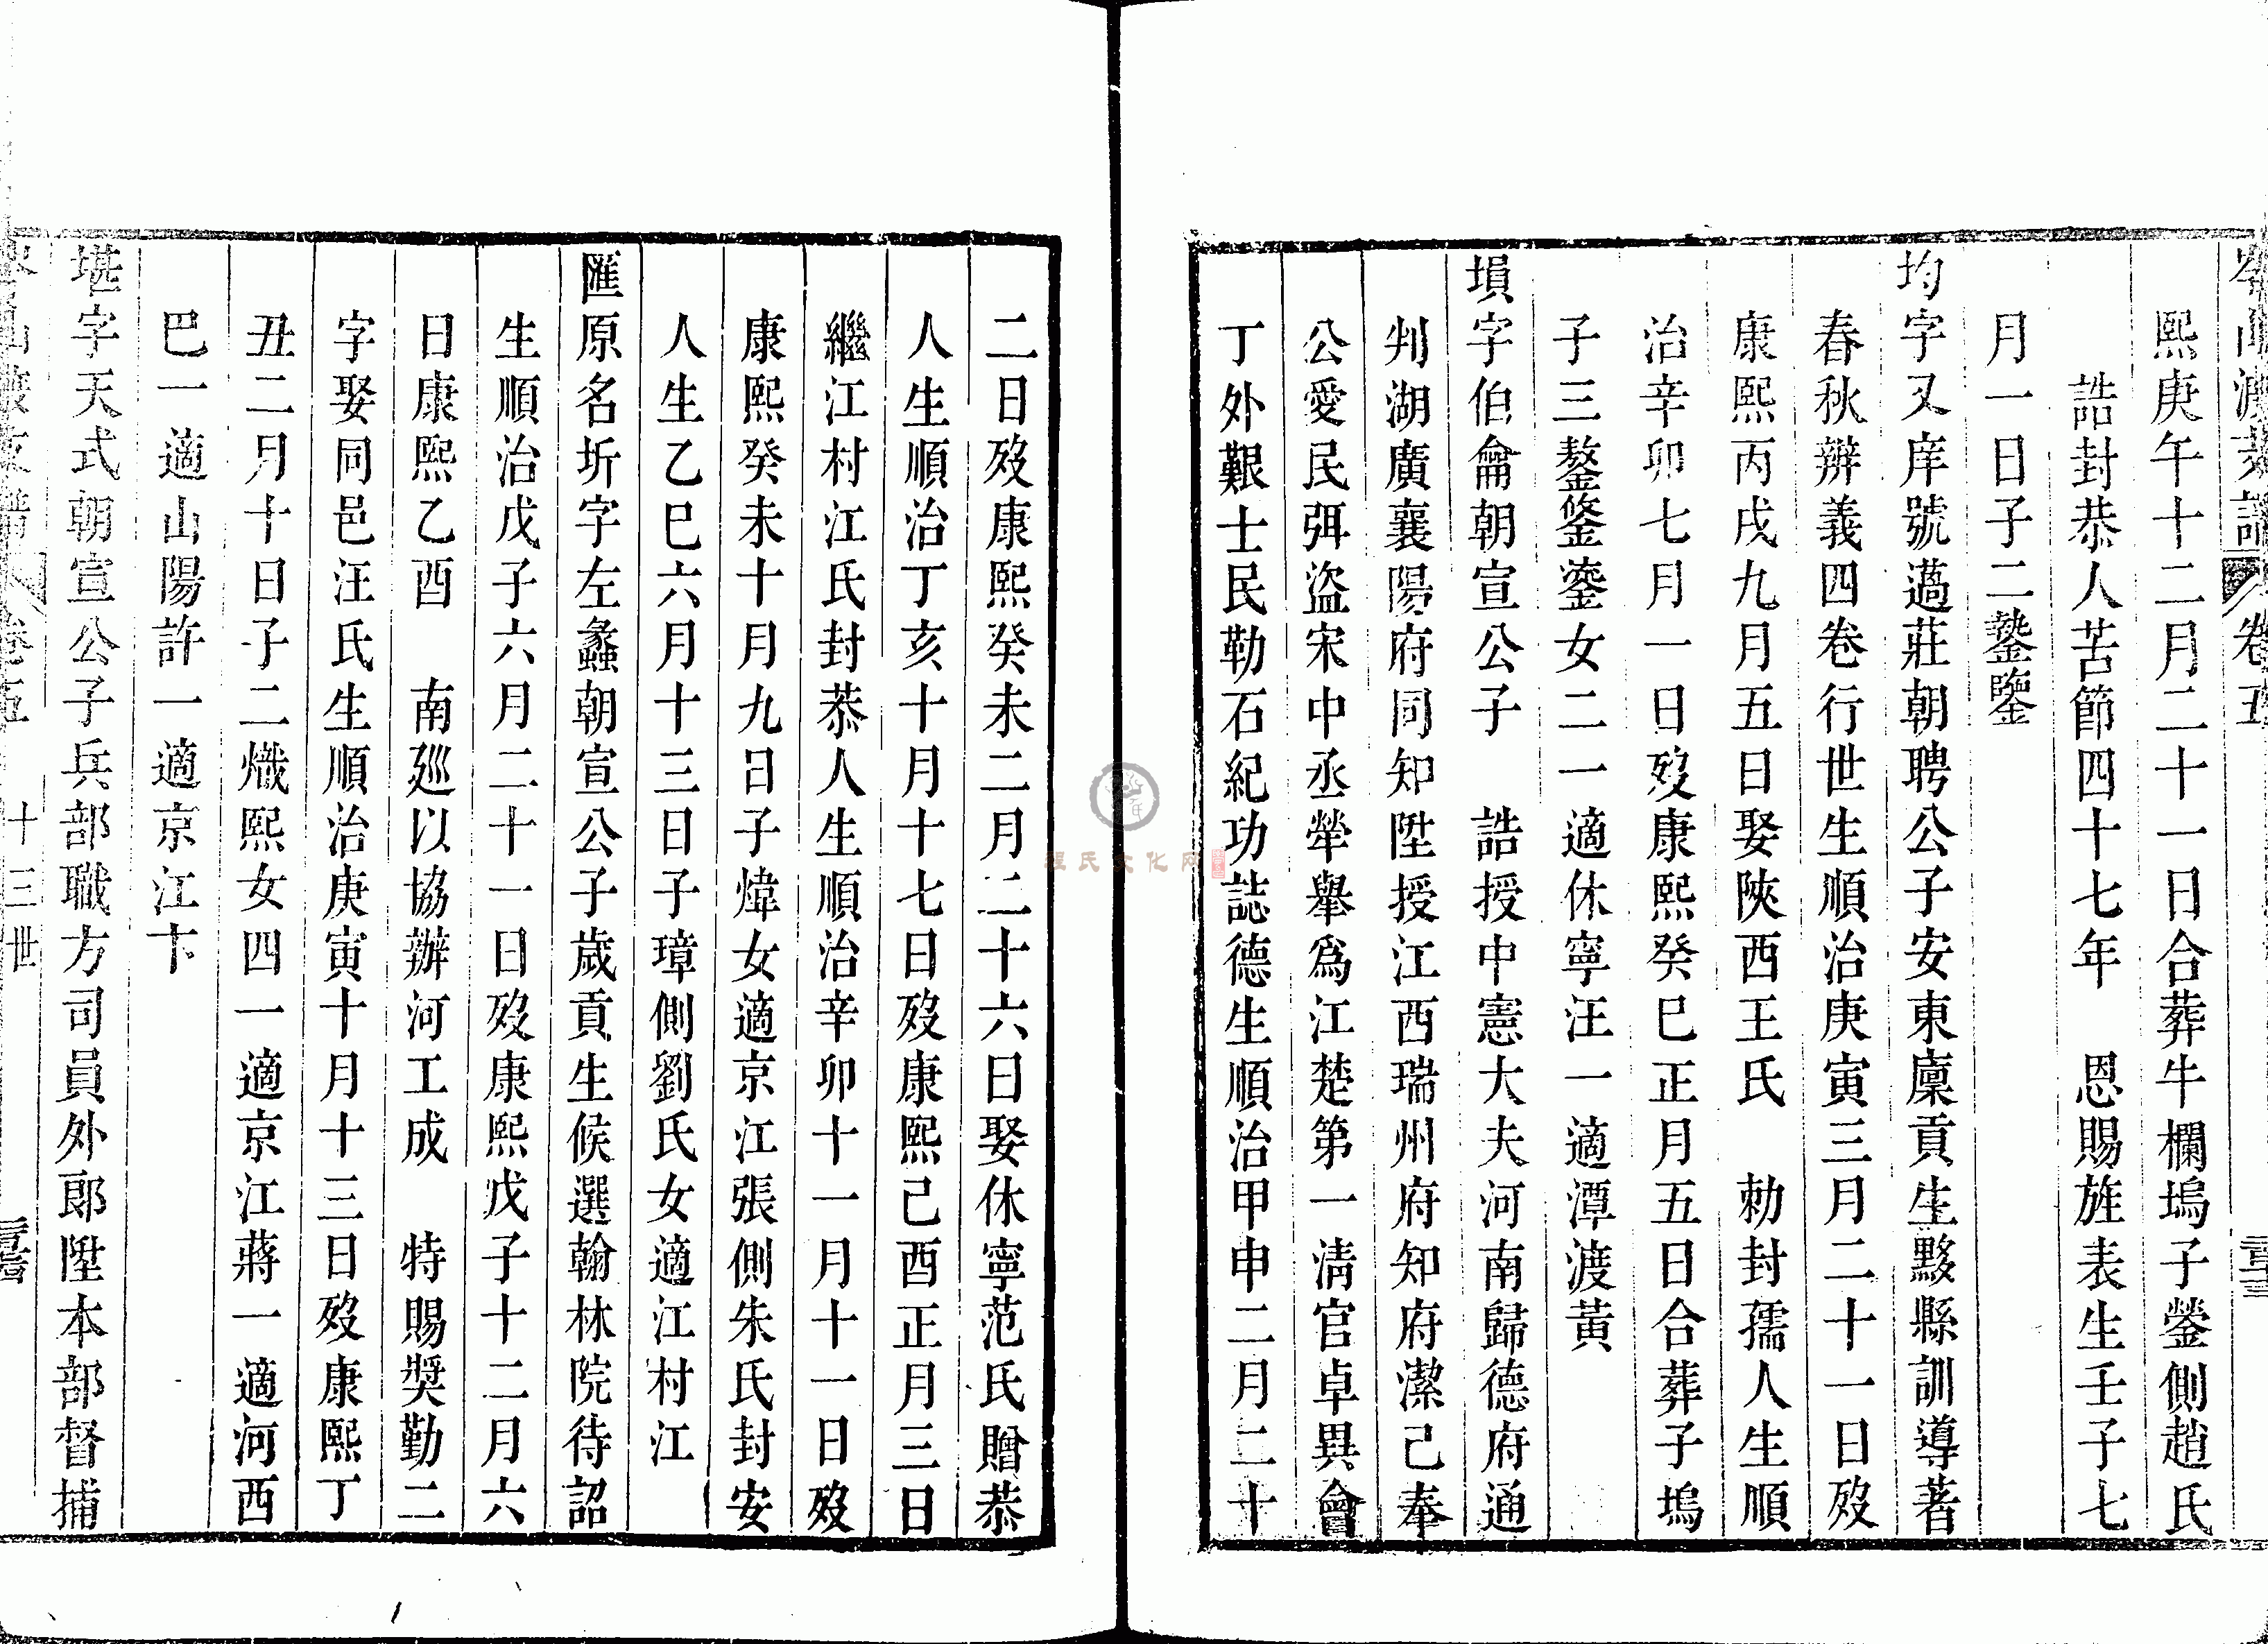 卷五
熙庚午十二月二十一日合葬牛欄塢子鎣側趙氏
誥封恭人苦節四十七年 恩賜旌表生壬子七
月一日子二鏊鑒
均字又庠號邁莊朝聘公子安東廩貢生黟縣訓導著
春秋辦義四卷行世生順治庚寅三月二十一日歿
康熙丙戌九月五日娶陝西王氏 勅封孺人生順
治辛卯七月一日歿康熙癸巳正月五日合葬子塢
子三鏊鋚鎏女二一適休寧汪一適潭渡黃
塤字伯龠朝宣公子 誥授中憲大夫河南歸德府通
判湖廣襄陽府同知陞授江西瑞州府知府潔己奉
公愛民弭盜宋中丞犖舉為江楚第一清官卓異會
丁外艱士民勒石紀功誌德生順治甲申二月二十
二日歿康熙癸未二月二十六日娶休寧范氏贈恭
人生順治丁亥十月十七日歿康熙己酉正月三日
繼江村江氏封恭人生順治辛卯十一月十一日歿
康熙癸未十月九日子煒女適京江張側朱氏封安
人生乙巳六月十三日子璋側劉氏女適江村江
匯原名圻字左蠡朝宣公子歲貢生候選翰林院待詔
生順治戊子六月二十一日歿康熙戊子十二月六
日康熙乙酉 南廵以協辦河工成 特賜獎勤二
字娶同邑汪氏生順治庚寅十月十三日歿康熙丁
丑二月十日子二熾熙女四一適京江蔣一適河西
巴一適山陽許一適京江卞
堪字天式朝宣公子兵部職方司員外郎陞本部督捕
卷五 十三世